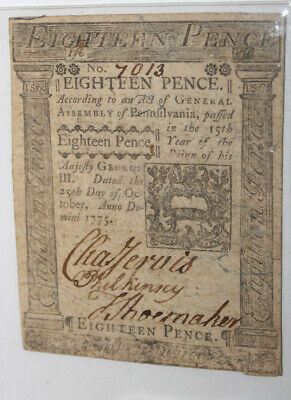 EIGHTEEN PENCE
1s6
No. 7013
EIGHTEEN PENCE.
According to an Act of GENERAL
ASSEMBLY of Pennsylvania, passed
in the 15th
Eighteen Pence
Year of the
Reign of his
Majesty GEORGE
III. Dated the
25th Day of Oc-
tober, Anno Do-
mini 1775.
Cha Jervis
Phil Kinsey
J Shoemaker
EIGHTEEN PENCE.
Eighteen Pence
Eighteen Pence